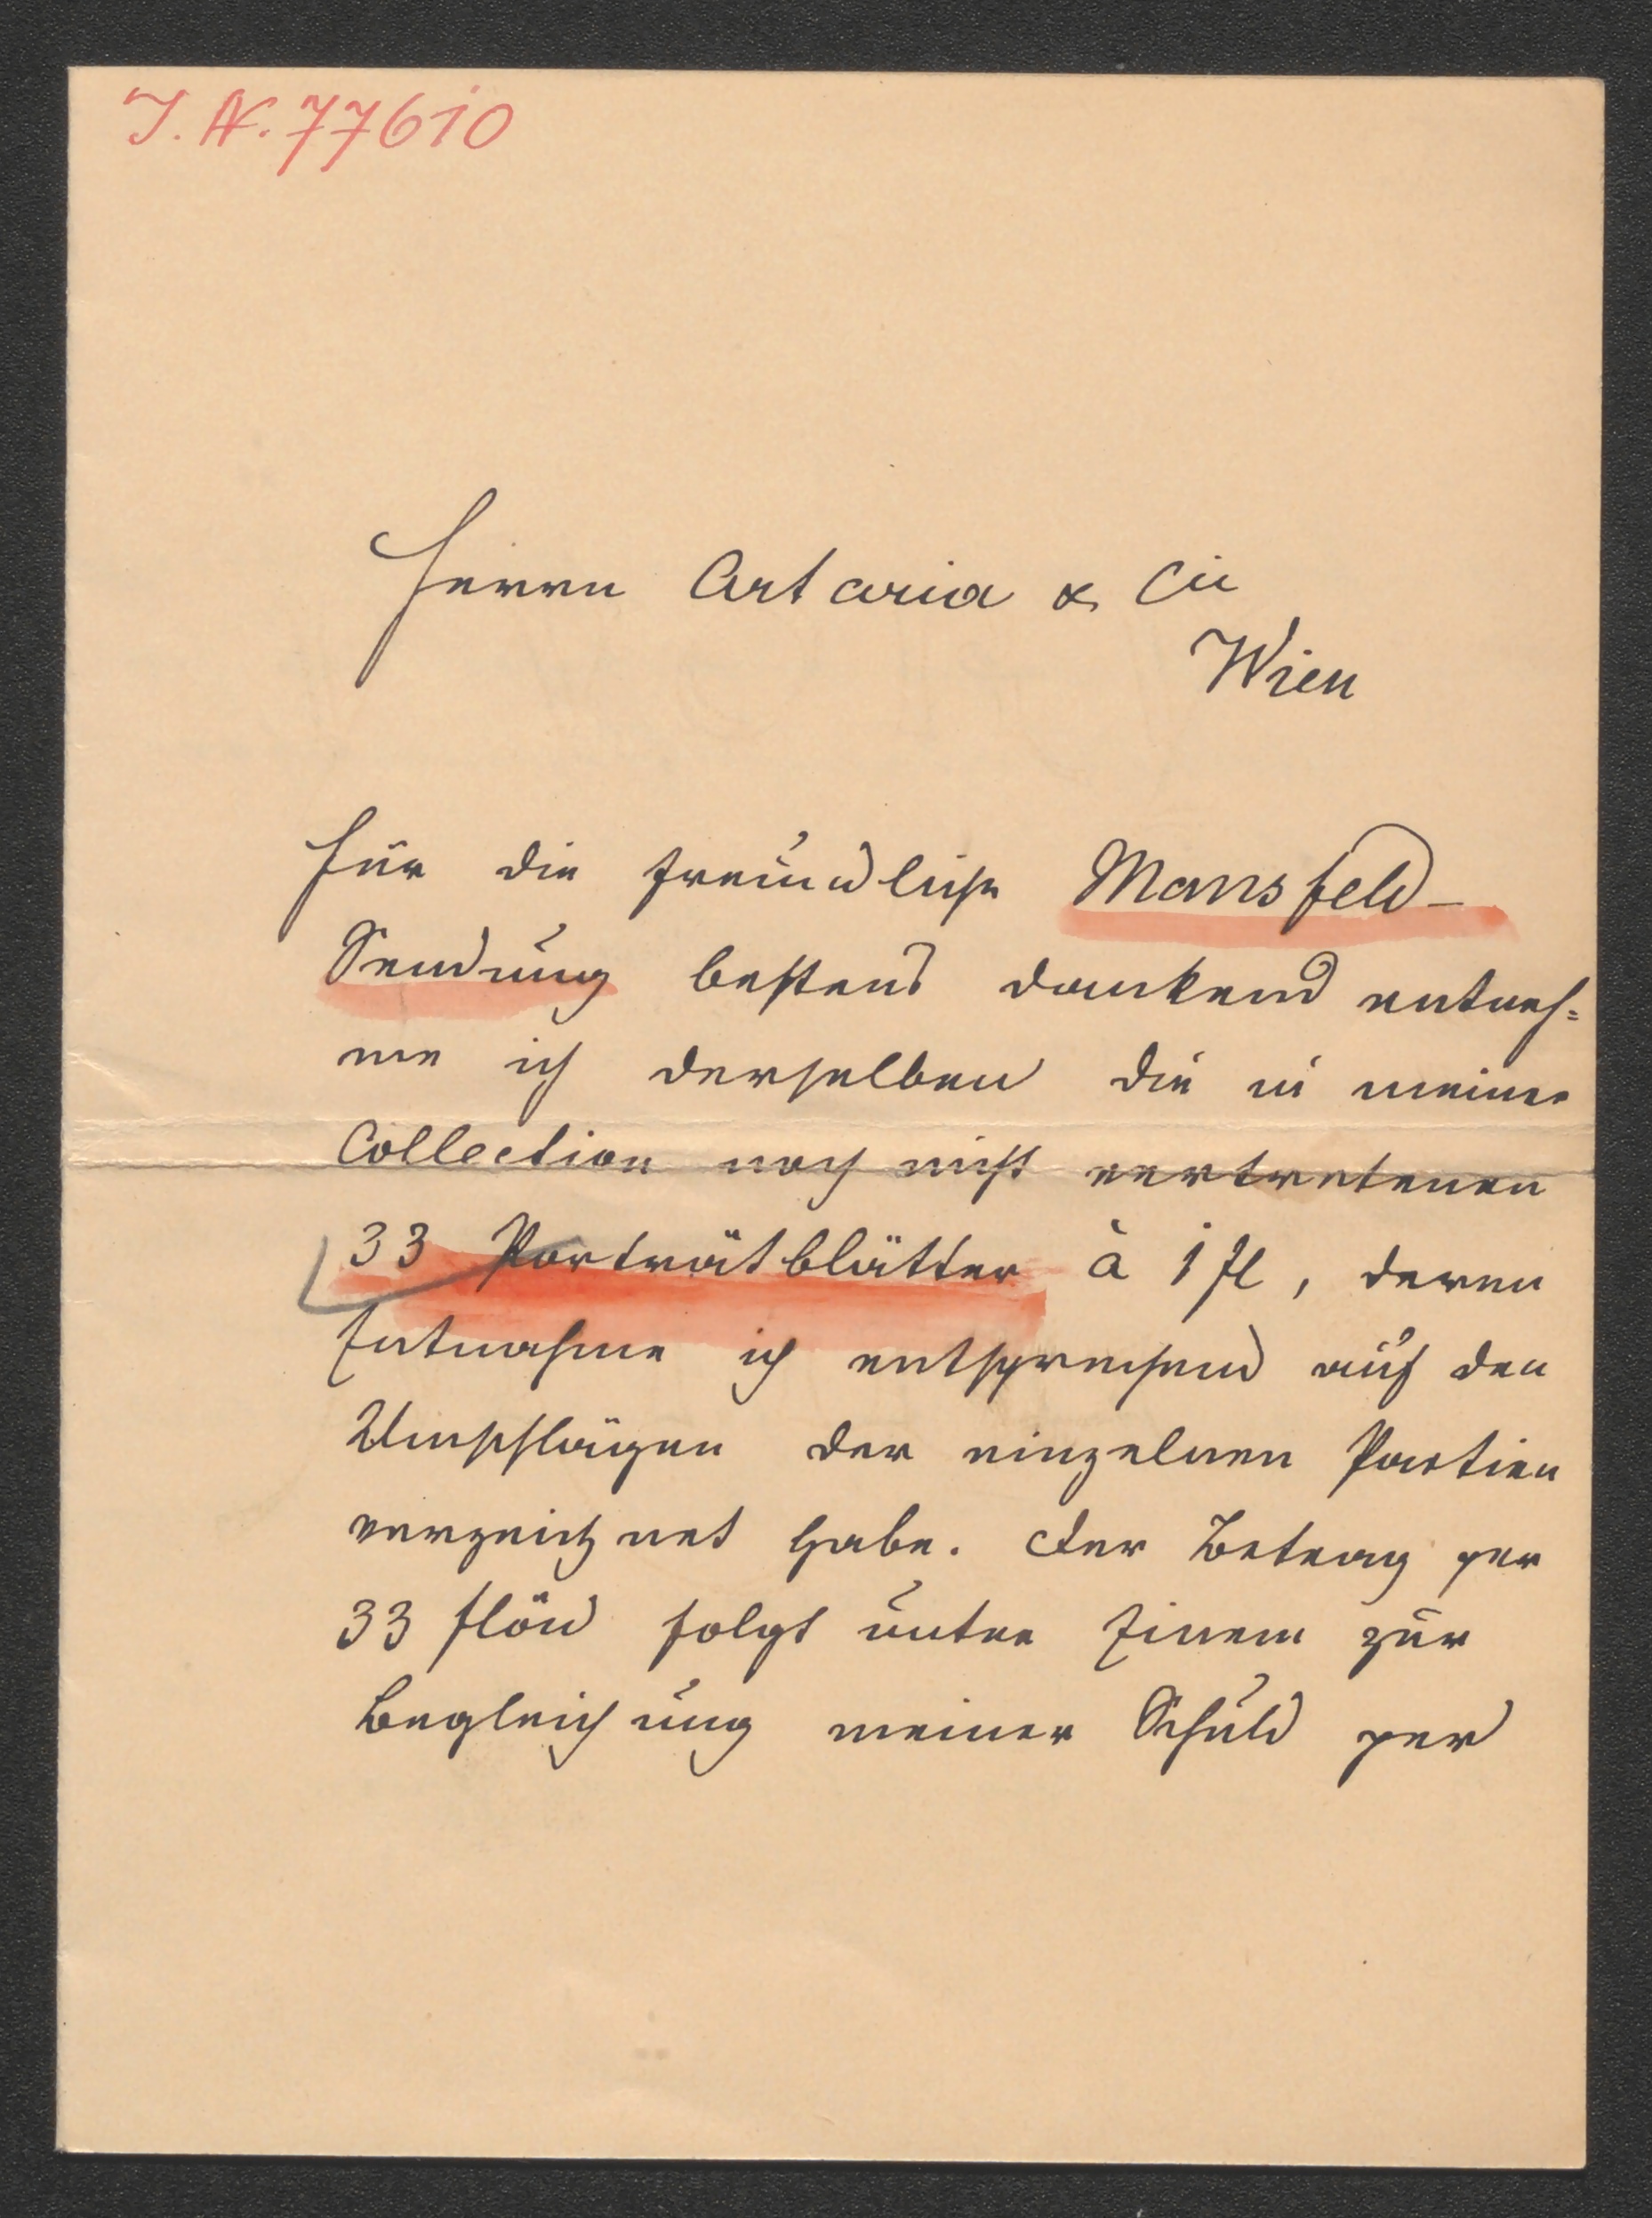 J. N. 77610
Herrn Artaria & Cie
Wien
Für die freundliche Mansfeld-
Sendung bestens dankend entneh-
me ich derselben die in meiner
Collection noch nicht vertretenen
33 Porträtblätter à 1 fl, deren
Entnahme ich entsprechend auf den
Umschlägen der einzelnen Partien
verzeichnet habe. Der Betrag per
33 flöw folgt unter Einem zur
Begleichung meiner Schuld per